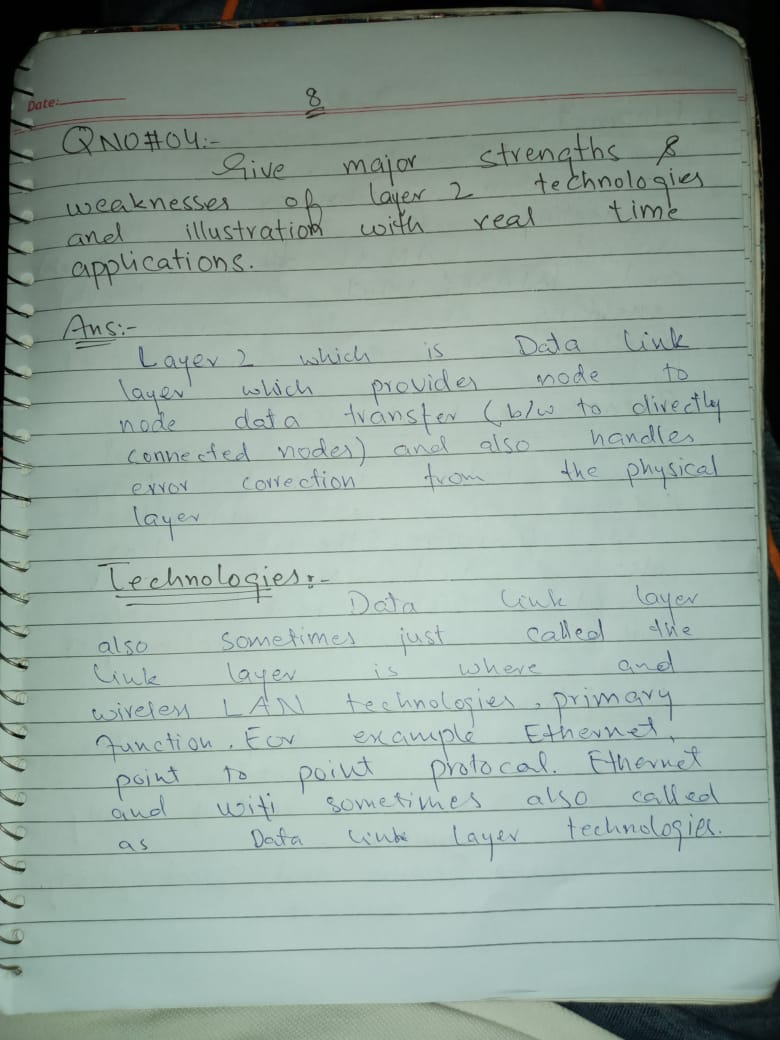 Date:
8
QNO#04:-
Give major strengths &
weaknesses of layer 2 technologies
and illustration with real time
applications.
Ans:-
Layer 2 which is Data link
layer which provides node to
node data transfer (b/w to divectly
connected nodes) and also handles
error correction from the physical
layer
Technologies:-
Data link layer
also sometimes just called the
link layer is where and
wireless LAN technologies, primary
function. For example Ethernet,
point to point protocal. Ethernet
and wifi sometimes also called
as Data link layer technologies.